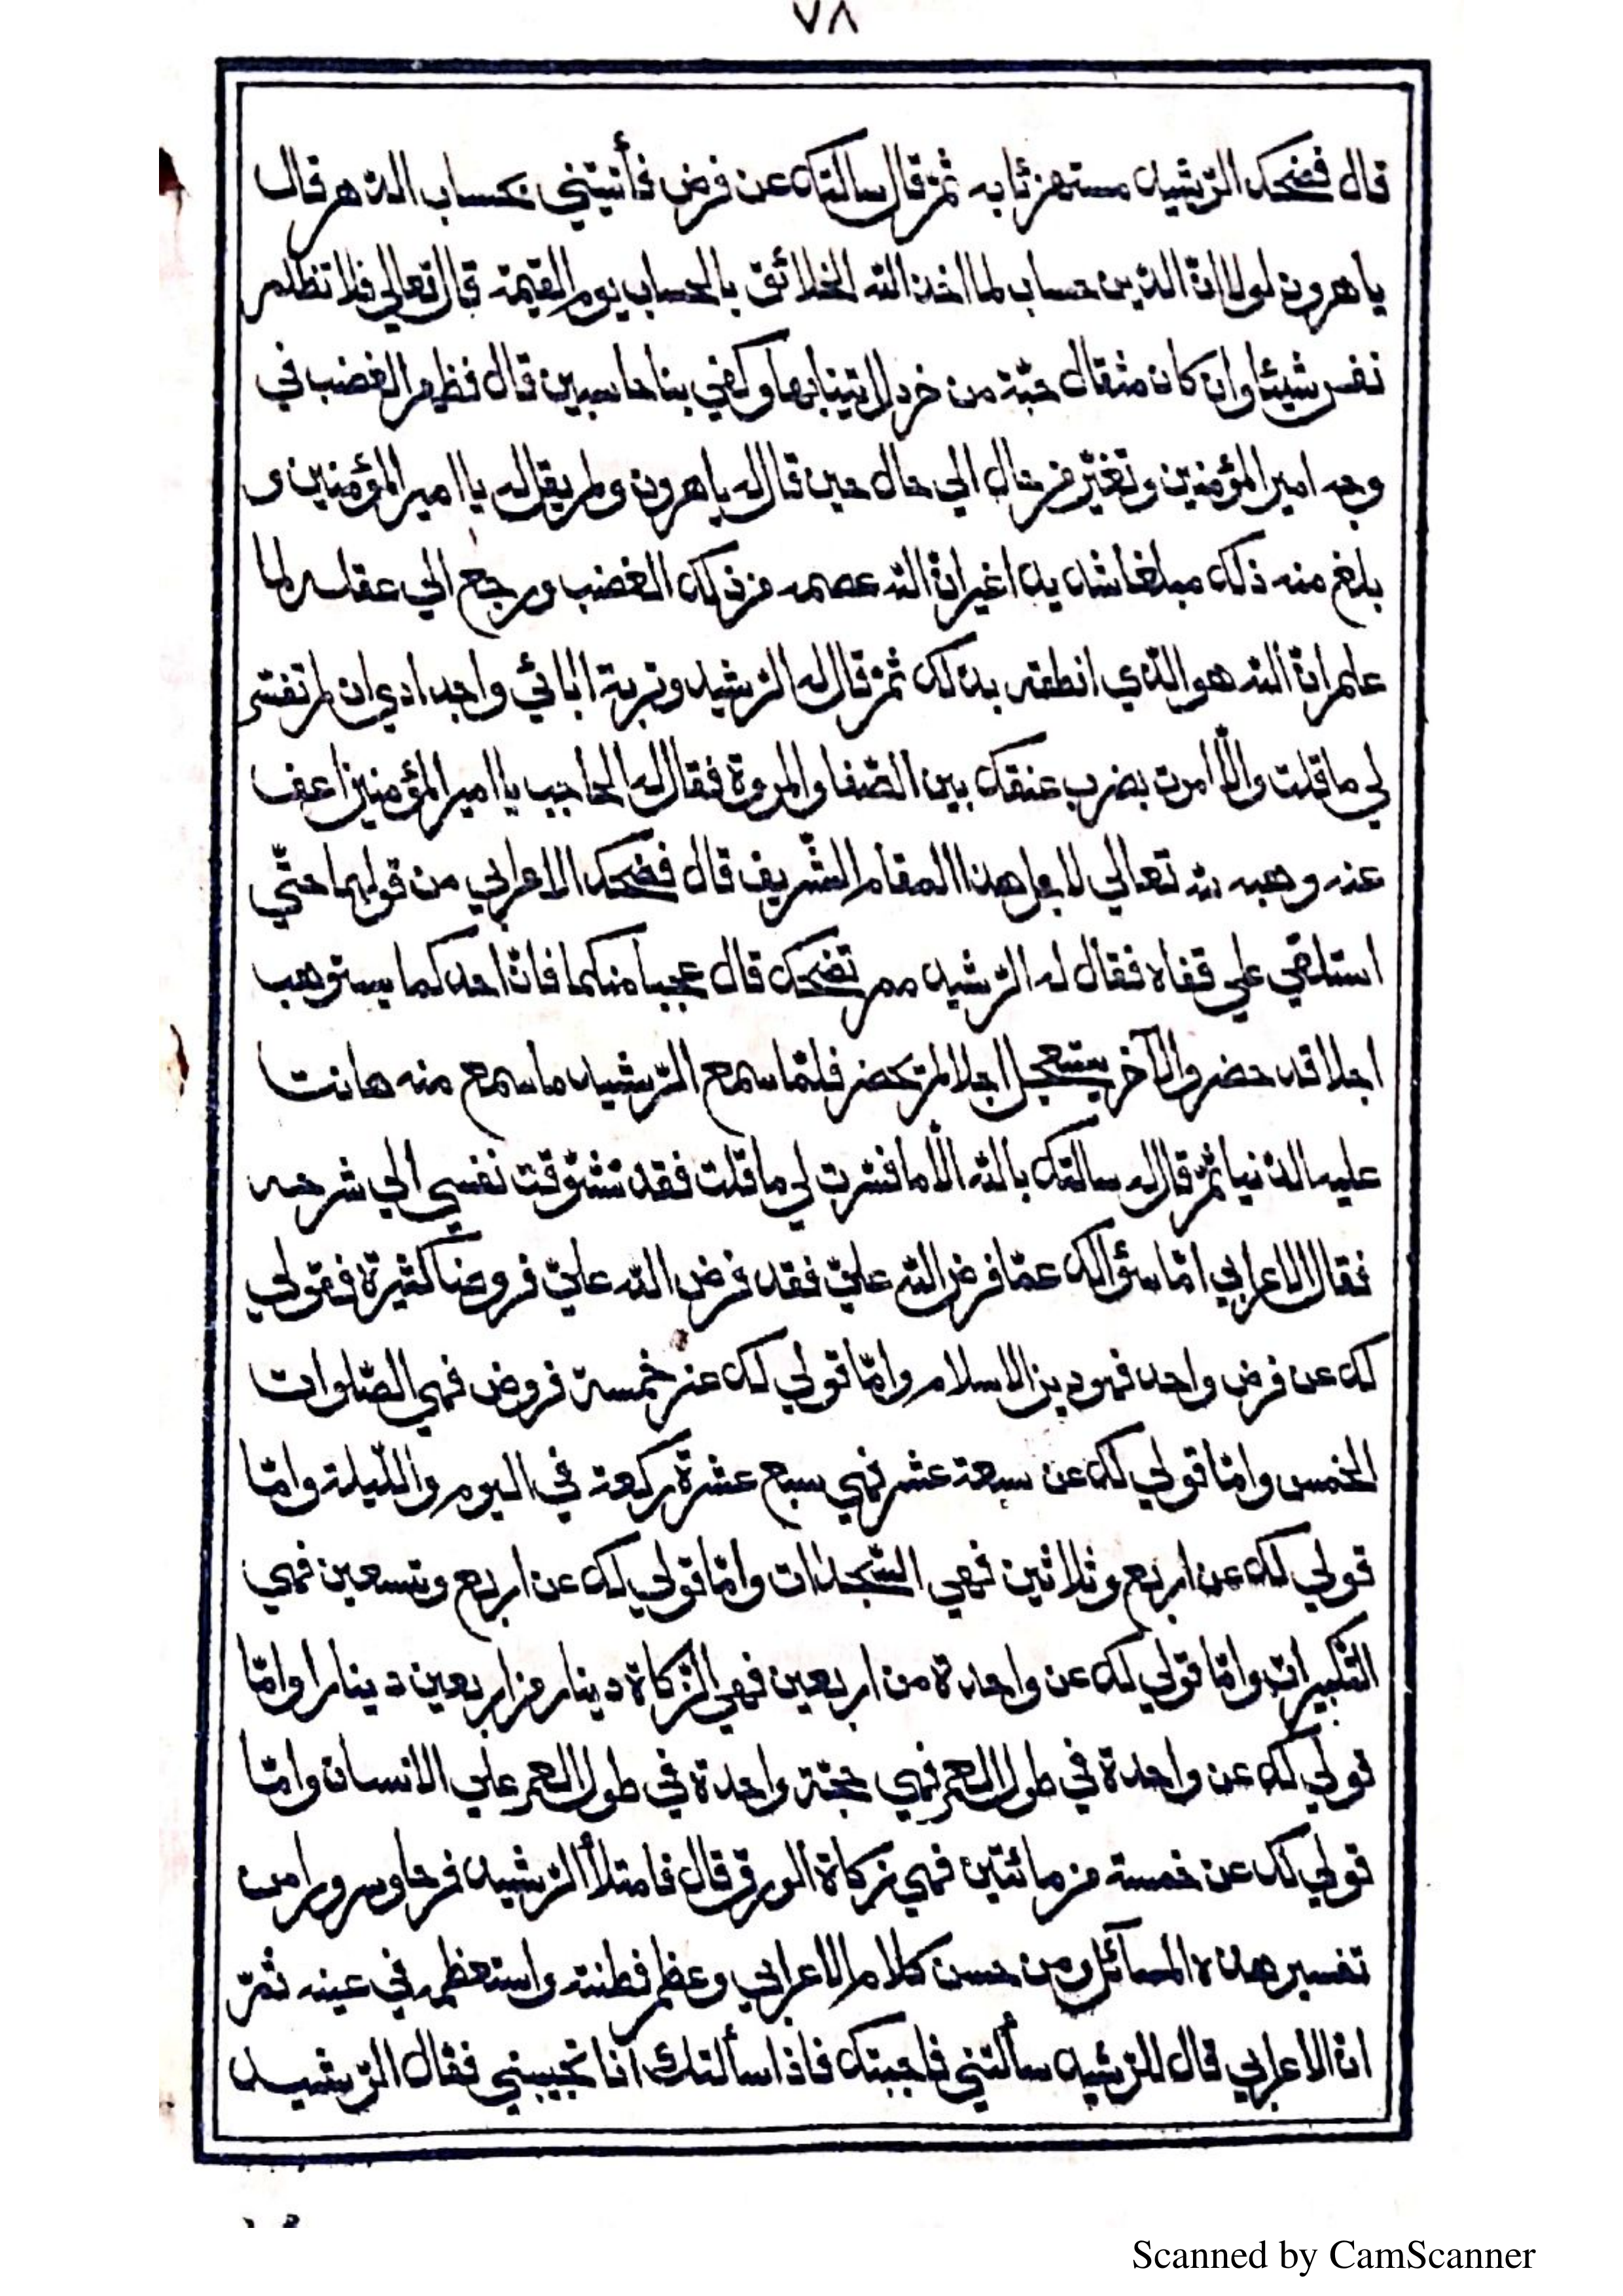 ٧٨
قال فضحك الرّشيد مستهزئا به ثمّ قال سالتك عن فرض فأتيتني بحساب الدّهر قال
ياهرون لولا انّ الدّين حساب لما اخذ اللّه الخلائق بالحساب يوم القيمة قال تعالي فلا تظلم
نفس شيئا وان كان مثقال حبّة من خردل اتينا بها وكفي بنا حاسبين قال فظهر الغضب في
وجه امير المؤمنين وتغيّر من حال الي حال حين قال له ياهرون ولم يقل له يا امير المؤمنين و
بلغ منه ذلك مبلغا شديدا غير انّ اللّه عصمه من ذلك الغضب ورجع الي عقله لما
علم انّ اللّه هو الّذي انطقه بذلك ثمّ قال له الرّشيد وتربة ابائي واجدادي ان لم تفسّر
لي ما قلت والّا امرت بضرب عنقك بين الصّفا والمروة فقال له الحاجب يا امير المؤمنين اعف
عنه وهبه للّه تعالي لاجل هذا المقام الشّريف قال فضحك الاعرابي من قولهما حتّي
استلقي علي قفاه فقال له الرّشيد مم تضحك قال عجبا منكما فانّ احدكما يستوهب
اجلا قد حضر والآخر يستعجل اجلا لم يحضر فلمّا سمع الرّشيد ما سمع منه هانت
عليه الدّنيا ثمّ قال له سالتك باللّه الّا ما فسّرت لي ما قلت فقد تشوّقت نفسي الي شرحه
فقال الاعرابي امّا سؤالك عمّا فرض اللّه عليّ فقد فرض اللّه عليّ فروضا كثيرة فقولي
لك عن فرض واحد فهو دين الاسلام وامّا قولي لك عن خمسة فروض فهي الصّلوات
الخمس وامّا قولي لك عن سبعة عشر فهي سبع عشرة ركعة في اليوم واللّيلة وامّا
قولي لك عن اربع وثلاثين فهي السّجدات وامّا قولي لك عن اربع وتسعين فهي
التّكبيرات وامّا قولي لك عن واحدة من اربعين فهي الزّكاة دينار من اربعين دينارا وامّا
قولي لك عن واحدة في طول العمر فهي حجّة واحدة في طول العمر علي الانسان وامّا
قولي لك عن خمسة من مائتين فهي زكاة الورق قال فامتلأ الرّشيد فرحا وسرورا من
تفسير هذه المسآئل ومن حسن كلام الاعرابي وعظم فطنته واستعظمه في عينه ثمّ
انّ الاعرابي قال للرّشيد سألتني فاجبتك فاذا سألتك انا تجيبني فقال الرّشيد
Scanned by CamScanner